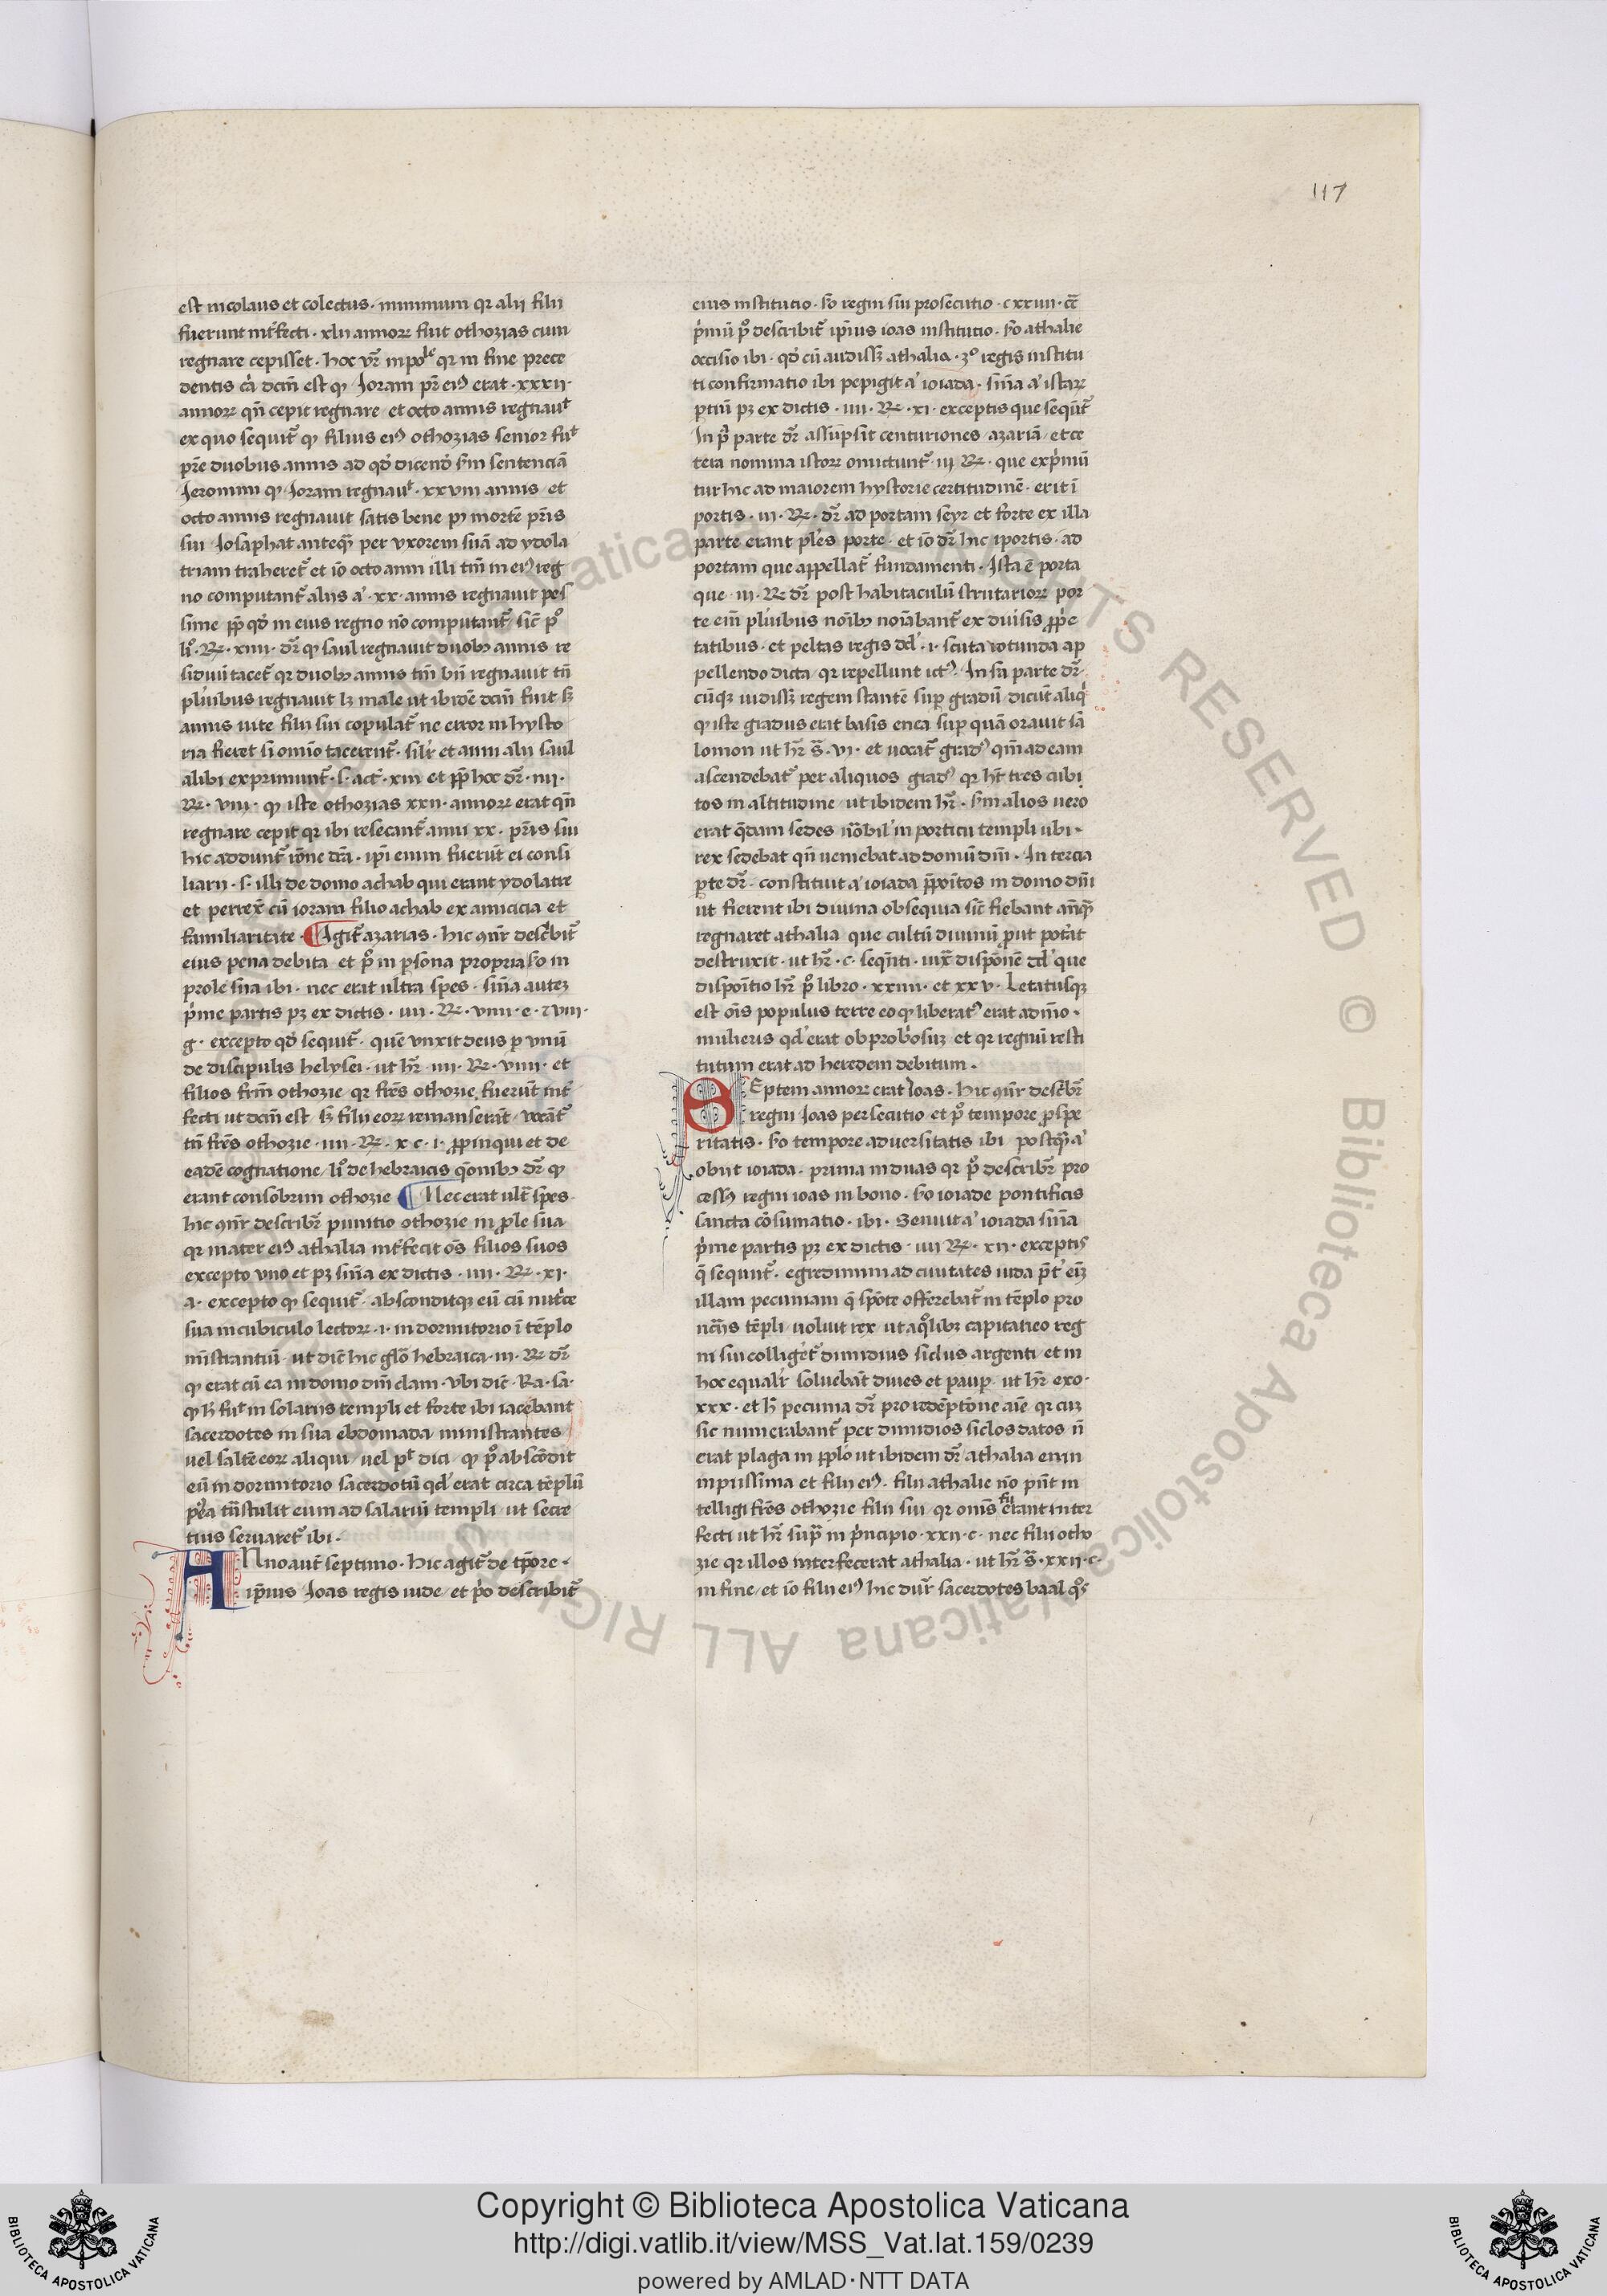 117
est nicolaus et colectus · minimum qr alij filii
fuerunt int̄fecti · xlii annorꝝ fuit othozias cum
regnare cepisset · hoc vr̄ inpo͛le qr in fine prece
dentis ca̍ dcm̄ est ꝙ Joram pr̄ eiꝰ erat · xxxii ·
annorꝝ qn̄ cepit regnare et octo annis regnauͭ
ex quo sequit̄ ꝙ filius eiꝰ othozias senior fuͭ
pr̄e duobus annis ad qd̍ dicend̍ scd̄m sentenciā
Jeronimi ꝙ Joram regnauͭ · xxviii annis et
octo annis regnauit satis bene pꝰ mortē pr̄is
sui Josaphat anteqꝫ per vxorem suā ad ydola
triam traheret̄ et iō octo anni illi tm̄ in eiꝰ reg
no computant̄ alijs a̍ · xx · annis regnauit pes
sime ꝓp̄ qd̍ in eius regno nō computant̄ sic̄ pͦ
liͦ · Re · xiiii · dr̄ ꝙ saul regnauit duobꝫ annis re
siduū tacet̄ qr duobꝫ annis tm̄ bn̄ regnauit tn̄
plu̍ibus regnauit lꝫ male ut ibidē dcm̄ fuit sꝫ
annis uite filii sui copulat̄ ne error in hysto
ria fieret si omīo tacerent̄ · silr̄ et anni alii saul
alibi exprimunt̄ · s · act̄ · xiii et ꝓp̄ hoc dr̄ · iiii ·
Re · viii · ꝙ iste othozias xxii · annorꝝ erat qn̄
regnare cepit qr ibi resecant̄ anni xx · pr̄is sui
hic addunt̄ rōne dcā · ip̄i enim fuerūt ei consi
liarii · s · illi de domo achab qui erant ydolatre
et perrex̄ cū ioram filio achab ex amicicia et
familiaritate · ¶ Agit̄ azarias · hic ꝯnr̄ describit̄
eius pena debita et pͦ in ꝑsona propria sͦo in
prole sua ibi · nec erat ultra spes · sn̄ia autez
p̍me partis pꝫ ex dictis · iiii · Re · viiii · e · 7 viii ·
g · excepto qd̍ sequit̄ · quē vnxit deus ꝑ vnū
de discipulis helysei · ut hr̄ · iiii · Re · viiii · et
filios frm̄ othozie qr frēs othozie fuerūt int̄
fecti ut dcm̄ est sꝫ filii eorꝝ remanserāt uocāt̄
tn̄ frēs othozie · iiii · Re · x · c · i · ꝓpinqui et de
eadē cognatione liͦ de hebraicis qōnibꝫ dr̄ ꝙ
erant consobrini othozie ¶ Nec erat ult̄ spes ·
hic ꝯnr̄ describr̄ punitio othozie in ꝓle sua
qr mater eiꝰ athalia int̄fecit oēs filios suos
excepto vno et pꝫ sn̄ia ex dictis · iiii · Re · xi ·
a · excepto ꝙ sequit̄ · absconditqꝫ eū cū nut̍ce
sua in cubiculo lectorꝝ · i · in dormitorio ī tēplo
mīstrantiū · ut dic̄ hic glo̍ hebraica · iii · Re dr̄
ꝙ erat cū ea in domo dn̄i clam · vbi dic̄ · Ra · sa ·
ꝙ h̍ fuͭ in solariis templi et forte ibi iacebant
sacerdotes in sua ebdomada ministrantes
uel saltē eorꝝ aliqui / uel pͭ dici ꝙ pͦ abscōdit
eū in dormitorio sacerdotū qd̍ erat circa tēplū
p̍ea tn̄stulit eum ad salariū templi ut secre
tius seruaret̄ ibi ·
ANno aut̄ septimo · hic agit̄ de tp̄ore ·
ip̄ius Joas regis iude et p̍o describit̄
eius institutio · sͦo regni sui prosecutio · c xxiiii · cc̄
p̍mū pͦ describit̄ ip̄ius ioas institutio · sͦo athalie
occisio ibi · qd̍ cū audissꝫ athalia · 3ͦ regis institu
ti confirmatio ibi pepigit a̍ ioiada · sn̄ia a̍ istarꝝ
ptiū pꝫ ex dictis · iiii · Re · xi · exceptis que sequt̄
In p̍ parte dr̄ assūpsit centuriones / azariā / et ce
tera nomina istorꝝ omictunt̄ iii Re · que exp̍mū
tur hic ad maiorem hystorie certitudinē · erit ī
portis · iii · Re · dr̄ ad portam seyr et forte ex illa
parte erant ples porte · et iō dr̄ hic iportis · ad
portam que appellat̄ fundamenti · Ista ē porta
que iii · Re dr̄ post habitaculū scutariorꝝ por
te eni̍ plu̍ibus noībꝫ noīabant̄ ex diuīsis ꝓp̍e
tatibus · et peltas regis dd̍ · i · scuta rotunda ap
pellendo dicta qr repellunt ictꝰ · In sā parte dr̄
cūqꝫ uidissꝫ regem stantē suꝑ gradū dicūt aliq̍
ꝙ iste gradus erat basis enea suꝑ quā orauit sa
lomon ut hr̄ s̄ · vi · et uocat̄ gradꝰ qm̄ ad eam
ascendebat̄ per aliquos gradꝰ qr ht̄ tres cubi
tos in altitudine ut ibidem hr̄ · scd̄m alios uero
erat qdam sedes nōbil̍ in porticu templi ubi ·
rex sedebat qn̄ ueniebat ad domū dn̄i · In tercia
ꝑte dr̄ · constituit a̍ ioiada p̄poītos in domo dn̄i
ut fierent ibi diuina obsequia sic̄ fiebant an̄qꝫ
regnaret athalia que cultū diuinū ꝓut pot̍at
destruxit · ut hr̄ · c · seqn̄ti · iux̄ disponē dd̍ que
dispoītio hr̄ pͦ libro · xxiiii · et xxv · Letatusqꝫ
est oīs populus terre eo ꝙ liberatꝰ erat a dn̄io ·
mulieris qd̍ erat obprob̍osuꝫ et qr regnū resti
tutum erat ad heredem debitum ·
SEptem annorꝝ erat Joas · hic ꝯnr̄ descbr̄
regni Joas persecutio et pͦ tempore ꝓspe
ritatis · sͦo tempore aduersitatis ibi postqꝫ a̍
obiit ioiada · prima in duas qr pͦ describr̄ pro
cessꝰ regni ioas in bono · sͦo ioiade pontificis
sancta cōsumatio · ibi · Senuit a̍ ioiada sn̄ia
p̍me partis pꝫ ex dictis · iiii Re · xii · exceptis
q̄ sequnt̄ · egredimini ad ciuitates iuda p̄t̍ eni̍
illam pecuniam q̄ spōte offerebat̄ in tēplo pro
ncn̄is tēpli uoluit rex ut a qͦlibꝫ capitatieo reg
ni sui colliget̄ dimidius siclus argenti / et in
hoc equalr̄ soluebāt diues et pauꝑ · ut hr̄ exo ·
xxx · et h̍ pecunia dr̄ pro redēptōne aīe qr cuꝫ
sic numerabant̄ per dimidios siclos datos n̄
erat plaga in ꝓplo ut ibidem dr̄ athalia enim
inpiissima et filii eiꝰ · filii athalie nō pn̄t in
telligi frēs othozie filii sui qr omīs erant inter
fecti ut hr̄ supͣ in p̍ncipio · xxii · c · nec filii otho
zie qr illos interfecerat athalia · ut hr̄ s̄ · xxii · c ·
in fine et iō filii eiꝰ hic dicūt̄ sacerdotes baal qͦs
© Biblioteca Apostolica Vaticana ALL RIGHTS RESERVED
Copyright © Biblioteca Apostolica Vaticana
http://digi.vatlib.it/view/MSS_Vat.lat.159/0239
powered by AMLAD · NTT DATA
BIBLIOTECA APOSTOLICA VATICANA
BIBLIOTECA APOSTOLICA VATICANA